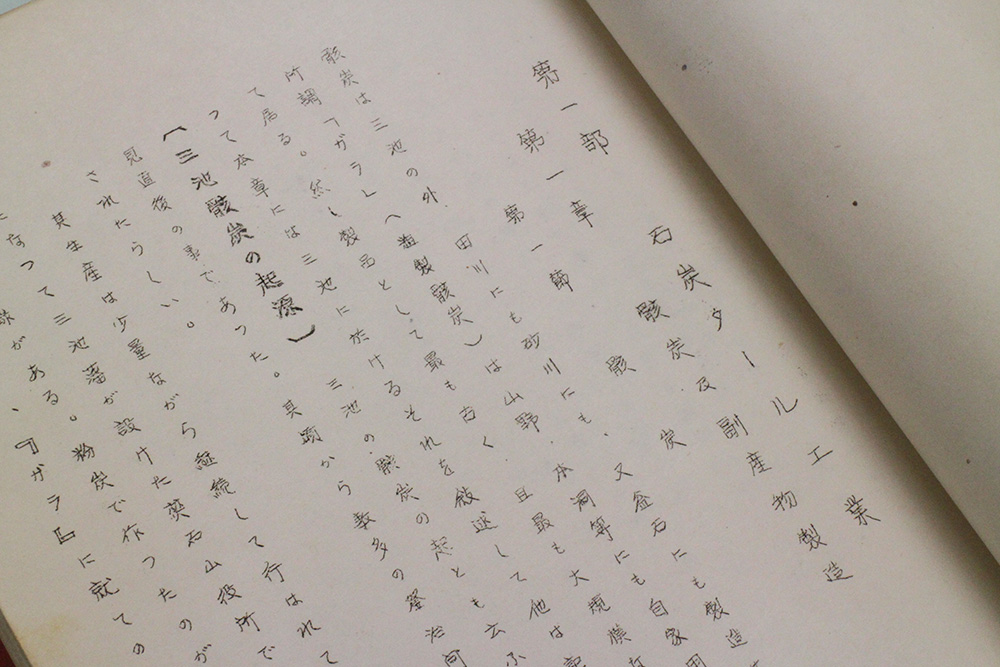 第一部 石炭タール工業
第一章 骸炭及副産物製造
第一節 骸炭
骸炭は三池の外 田川にも砂川にも、又釜石にも製造
所謂「ガラ」(製骸炭)は山野、本洞等にも自家用
て居る。然し製品として最も古く且最も大規模な
って本章には三池に於けるそれを敍述して他は
(三池骸炭の起源) 三池の骸炭の起とも云ふ
見直後の事であった。其頃から数多の治何
されたらしい。
其生産は少量ながら継続して行はれて
になって三池藩が設けた石山役所で
がある。粉炭で作ったのが
、『ガラ』に就ての